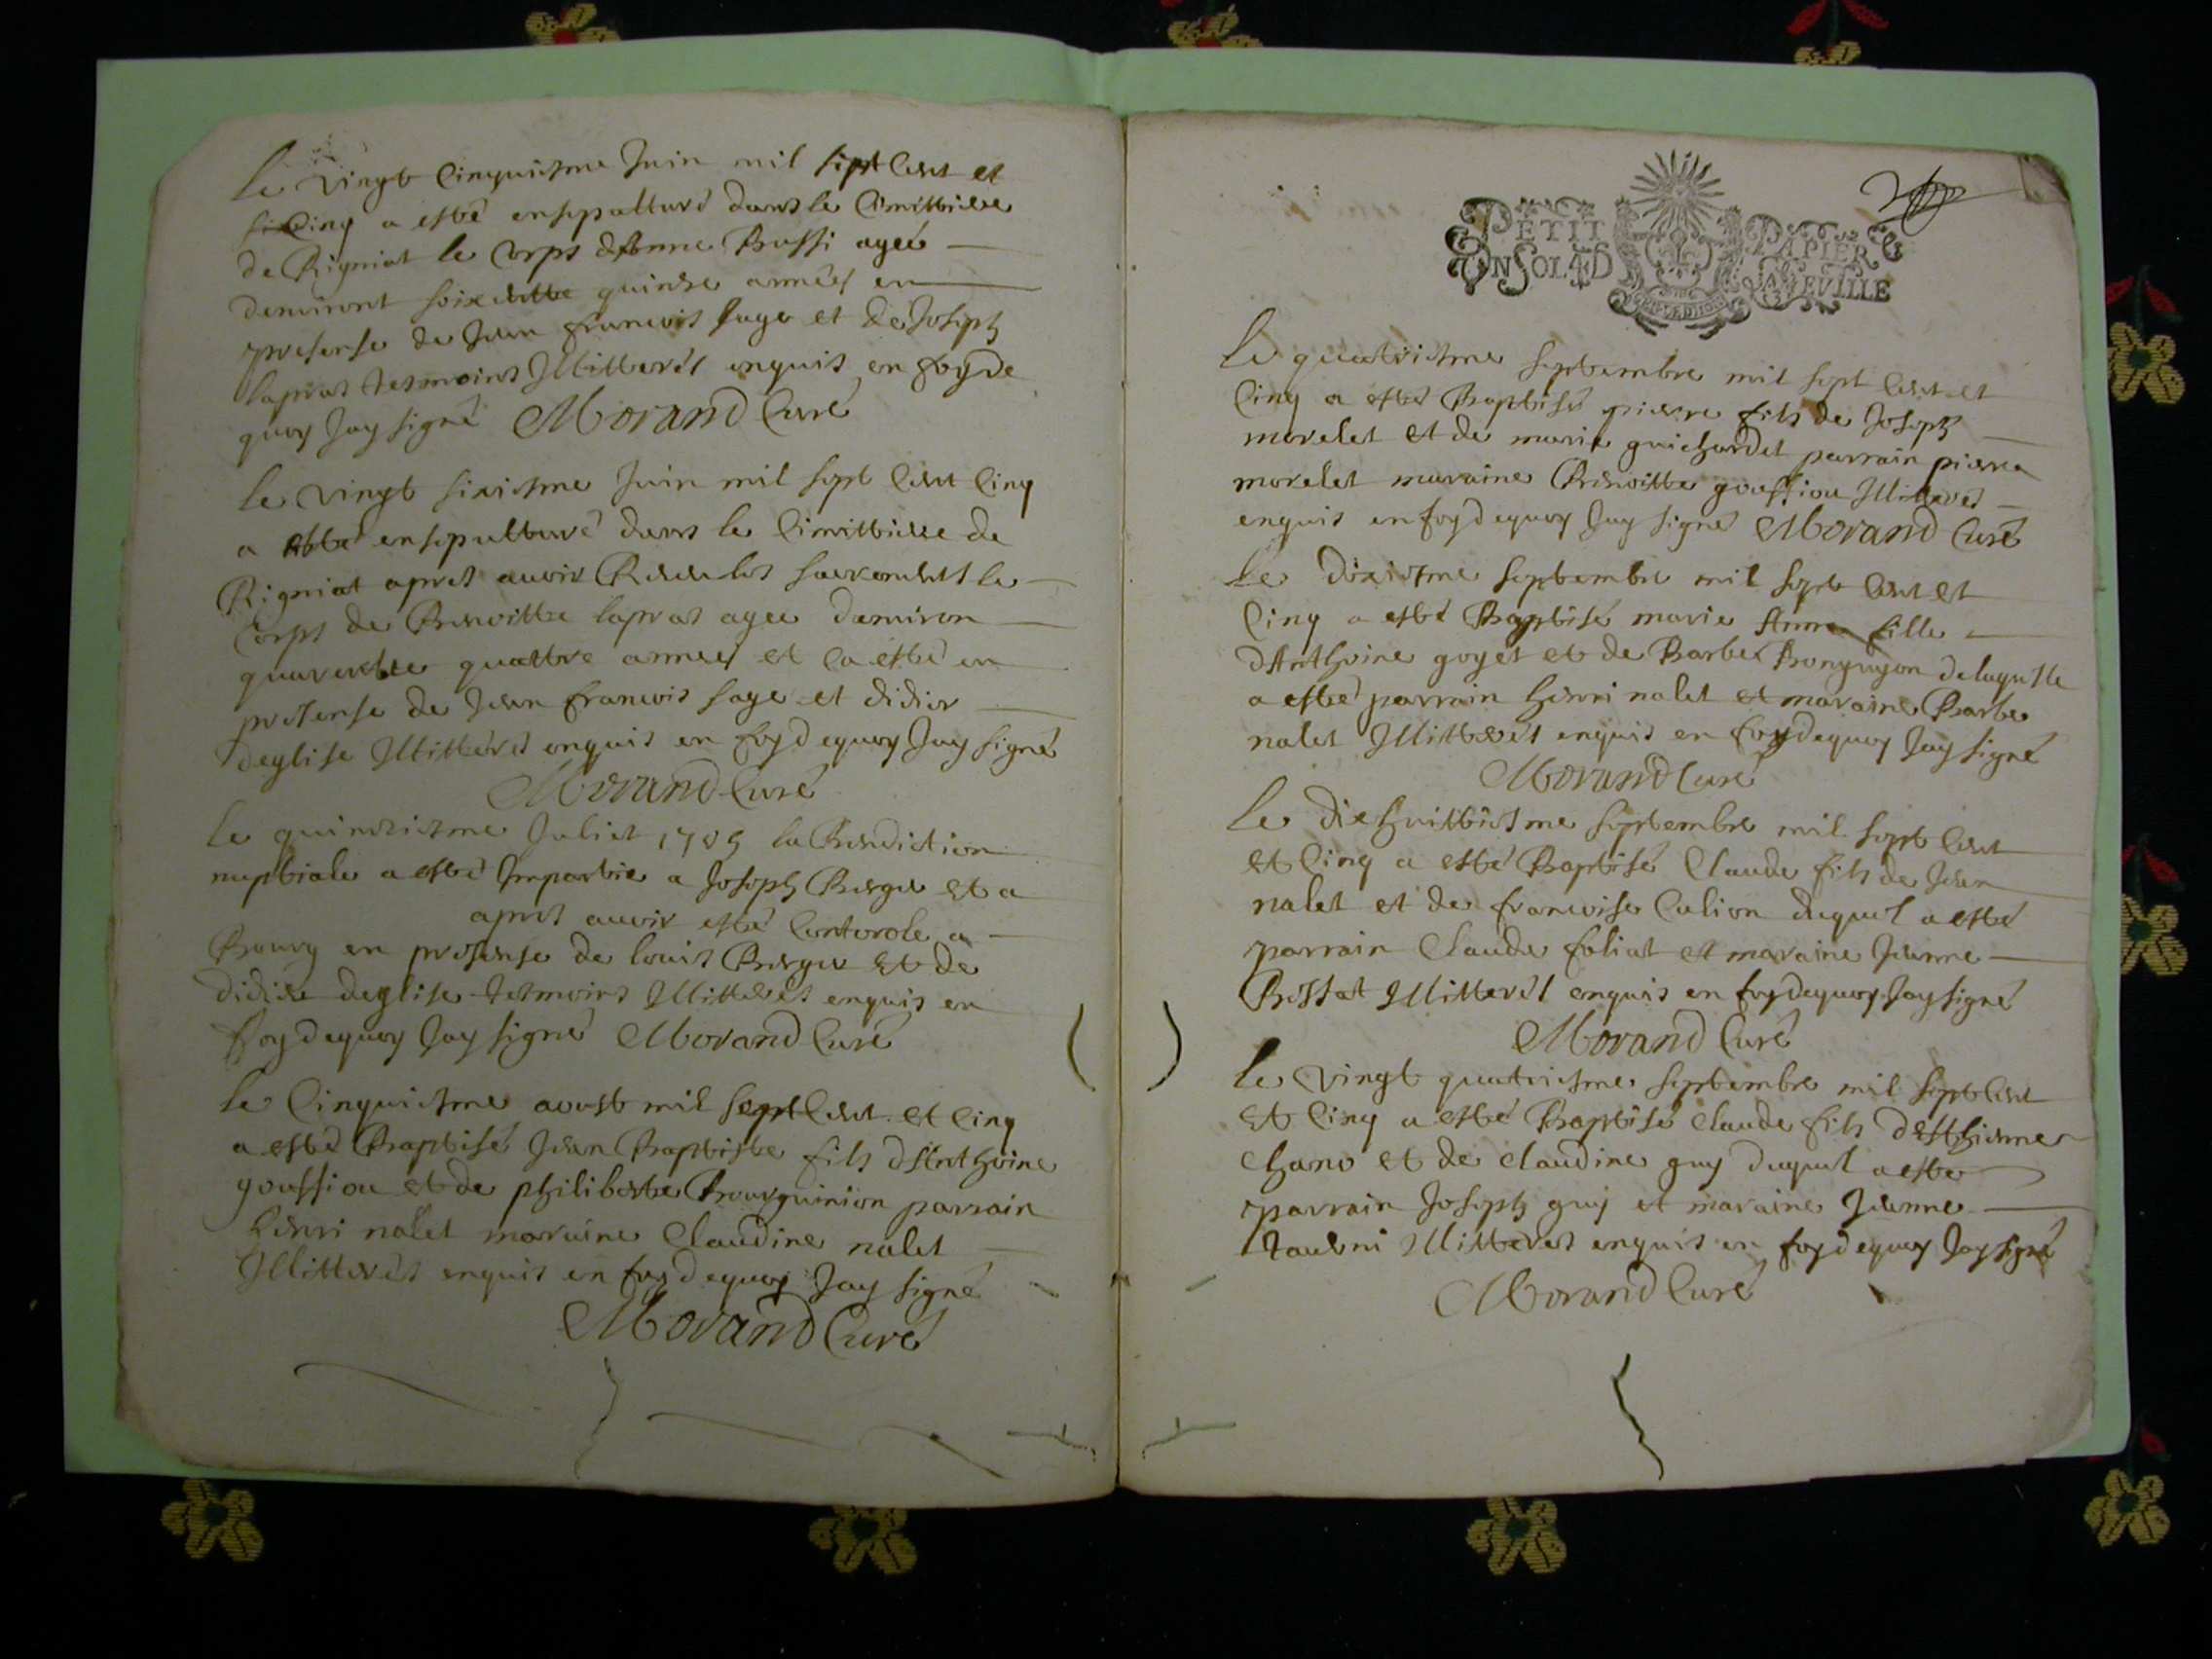 Le vingt cinquiesme Juin mil sept cent et
cinq a esté ensepulturé dans le cimittiere
de Rigniat le corps d'Anne Bussi agée
denuiront soixante quinse années en
presense de Jean francois sage et de Joseph
lapras tesmoins Illitterés enquis en foy de
quoy Jay signé Morand Curé
Le vingt sixiesme Juin mil sept cent cinq
a esté ensepulturé dans le cimittiere de
Rigniat apres auoir Receu les sacrements le
corps de Benoitte lapras agee denuiron
quarentte quattre années et ca esté en
presense de Jean francois sage et didier
deglise Illitterés enquis en foy dequoy Jay signé
Morand Curé
Le quinsiesme Juliet 1705 la Benediction
nuptiale a esté Impartie a Joseph Berger et a
apres auoir esté controle a
Bourg en presense de louis Berger et de
didier deglise tesmoins Illitterés enquis en
foy dequoy Jay signé Morand Curé
Le cinquiesme aoust mil sept cent et cinq
a esté Baptisé Jean Baptiste fils d'Anthoine
goussiou et de philiberte Bourguinion parrain
henri nalet maraine Claudine nalet
Illitterés enquis en foy dequoy Jay signé
Morand Curé
PETIT PAPIER
UN SOL 4 D LA FEUILLE
Le quatriesme septembre mil sept cent et
cinq a esté Baptisé pierre fils de Joseph
morelet et de marie guichardet parrain pierre
morelet maraine Benoitte goussiou Illiterés
enquis en foy dequoy Jay signé Morand Curé
Le dixiesme septembre mil sept cent et
cinq a esté Baptisé marie Anne fille
d'Anthoine goyet et de Barbe delaquelle
a esté parrain henri nalet et maraine Barbe
nalet Illitterés enquis en foy dequoy Jay signé
Morand Curé
Le dixhuittiesme septembre mil sept cent
et cinq a esté Baptisé Claude fils de Jean
nalet et de francoise Culion duquel a esté
parrain Claude foliat et maraine Jeanne
Illitterés enquis en foy dequoy Jay signé
Morand Curé
Le vingt quatriesme septembre mil sept cent
et cinq a esté Baptisé Claude fils d'Esthienne
et de Claudine guy duquel a esté
parrain Joseph guy et maraine Jeanne
Illitterés enquis en foy dequoy Jay signé
Morand Curé